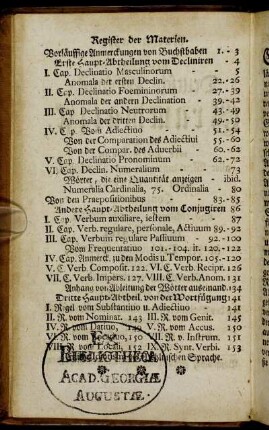 Register der Materien.
Vorläuffige Anmerckungen von Buchstaben 1. - 3
Erste Haupt-Abtheilung vom Decliniren - 4
I. Cap. Declinatio Masculinorum - - 5
Anomala der ersten Declin. 22. - 26
II. Cap. Declinatio Foemininorum 27. - 39
Anomala der andern Declination - 39. - 42
III. Cap Declinatio Neutrorum 43. - 49
Anomala der dritten Declin. 49. - 50
IV. C p. Vom Adiectiuo - 51. - 54
Von der Comparation des Adiectiui 55. - 60
Von der Compar. des Aduerbii - 60. - 62
V. Cap. Declinatio Pronominum - 62. - 72
VI. Cap. Declin. Numeralium 73
Wörter, die eine Quantität anzeigen - ibid.
Numeralia Cardinalia, 75. Ordinalia - 80
Von den Praepositionibus - 83. - 85
Andere Haupt-Abtheilung vom Conjugiren 86
I. Cap. Verbum auxiliare, iestem - 87
II. Cap. Verb. regulare, personale, Actiuum 89. - 92
III. Cap. Verbum regulare Passiuum - 92. - 100
Vom Frequentatiuo 101. - 104. it. 120. - 122
IV. Cap. Anmerck. zu den Modis u Tempor. 105. - 120
V. C. Verb Compositt. 122. VI. C. Verb. Recipr. 126
VII. C. Verb. Impers. 127. VIII. C. Verb. Anom. 131
Anhang von Ableitung der Wörter auseinand. 134
Dritte Haupt-Abtheil. von der Wortfügung 141
I. Regel vom Substantiuo u Adiectiuo - 141
II. R. vom Nominat. 143 III. R. vom Genit. 145
IV. R. vom Datiuo, 149 V. R. vom Accus. 150
VI. R. vom Vocatiuo, 151 VII. R. v. Instrum. 151
VIII. R. vom Locali, 152 IX. R. Synt. Verbi 153
Sprache.
ACAD. GEORGIÆ
AUGUSTÆ.